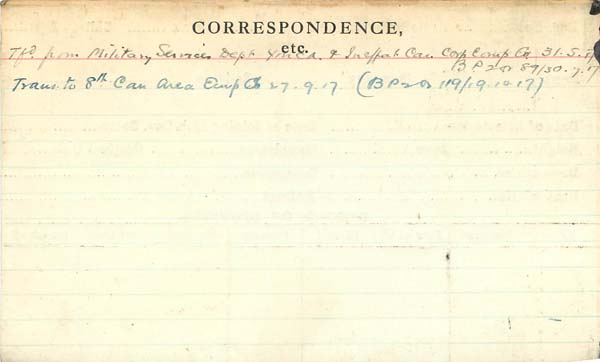 CORRESPONDENCE,
etc.
Tfd. from Military Service Dept YMCA. & Can Cop Emp Co 31.5.17
BP2 or 89/30.7.17
Trans. to 8th Can Area Emp Co 27.9.17. (BP2 or 119/19.10.17)